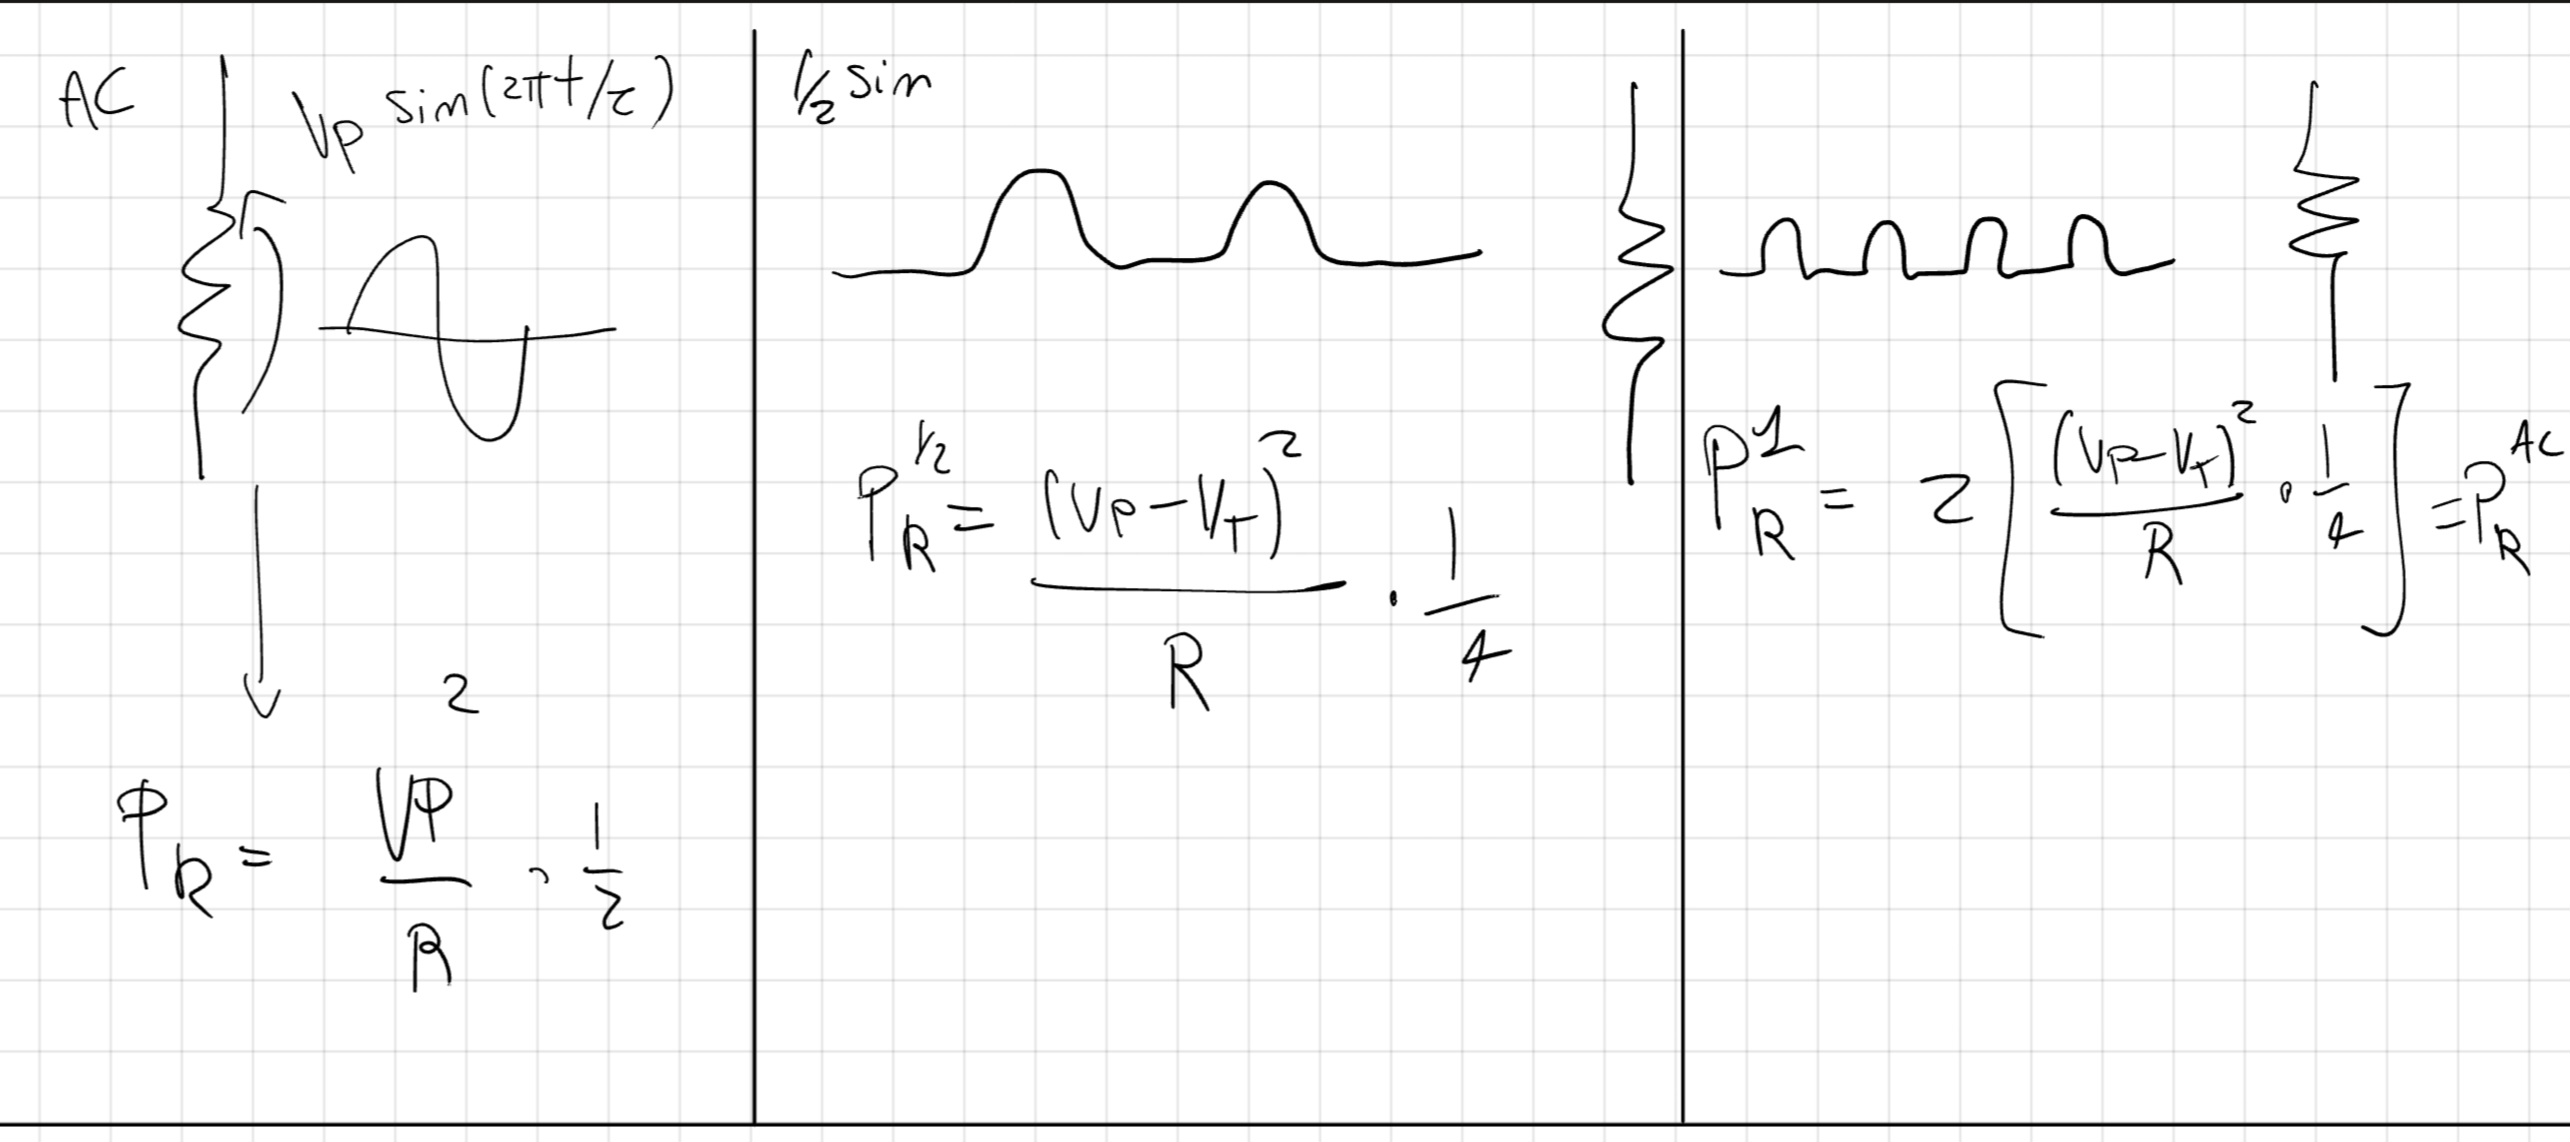 AC
Vp sin(2πt/τ)
P_R = Vp²/R · 1/2
1/2 sin
P_R^1/2 = (Vp-V_T)²/R · 1/4
P_R^1 = 2[(Vp-V_T)²/R · 1/4] = P_R^AC